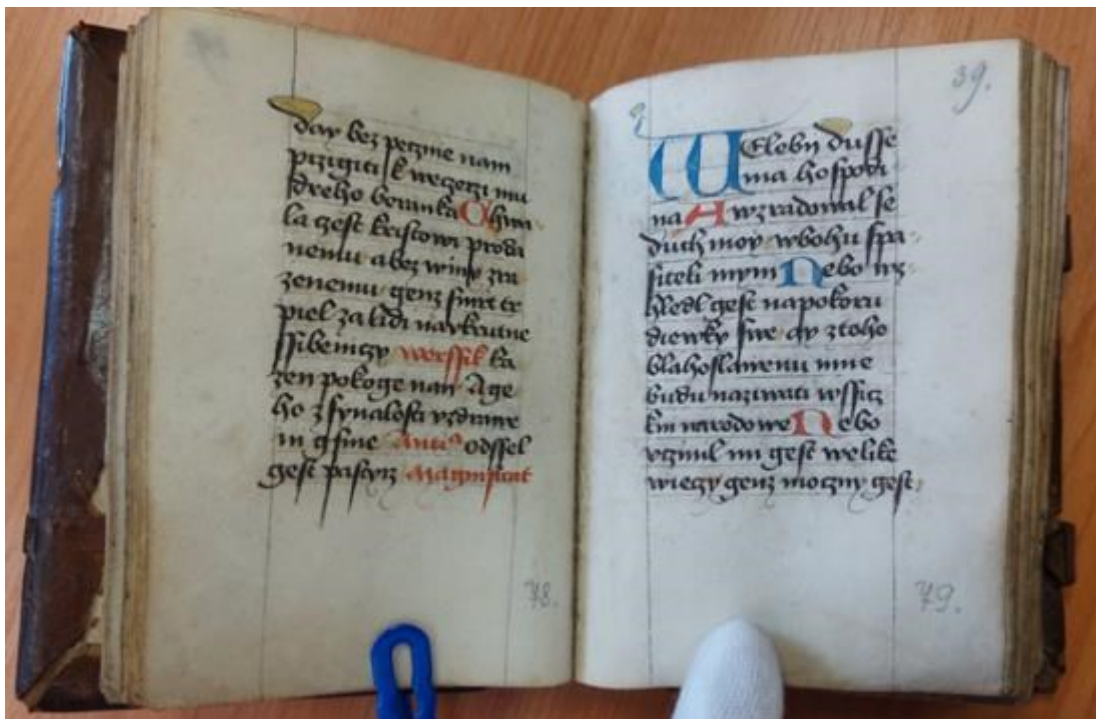 day bez peczme nam
przigiti k weczerzi mu
dreho beranka Chwa
la czest kristowi proda
nemu abez winy zra
zenemu genz smrt tr
piel za lidi naykrutne
ssibeniczy werssik ka
zen pokoge nan Age
ho zsynalosti vzdrawe
ni gsme Anti^a odssel
gest pastyrz Magnificat
78.
39.
WElebij dusse
ma hospodi
na A wzradowal se
duch moy wbohu spa
siteli mym Nebo wz
hledl gest napokoru
diewky swe ay ztoho
blahoslawenu mne
budu naziwati wssicz
kni narodowe Nebo
vczinil mi gest welike
wieczy genz moczny gest
79.